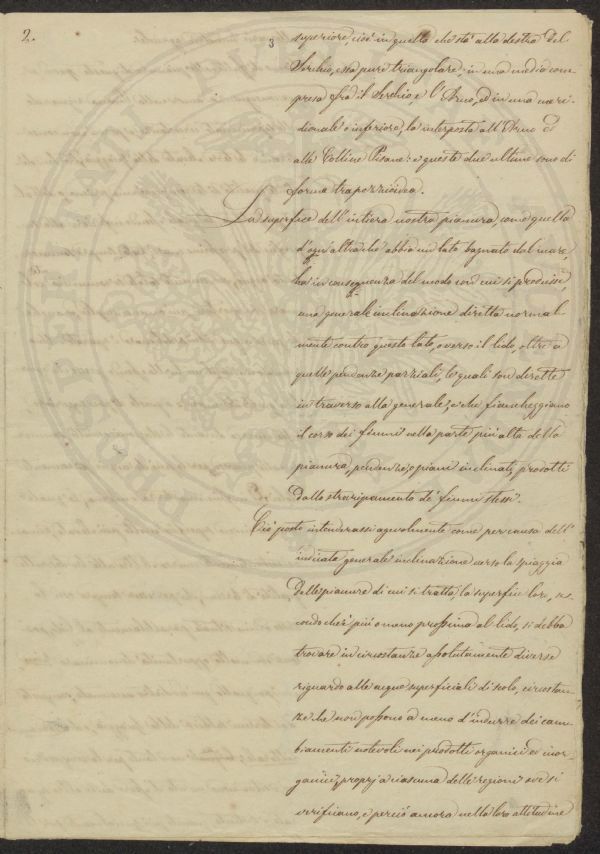 2.
3
superiore, cioè in quella che sta alla destra del
Serchio, essa pure triangolare; in una media com-
presa fra il Serchio e l'Arno, ed in una meri-
dionale o inferiore, la interposta all'Arno ed
alle Colline Pisane: e queste due ultime sono di
forma trapezzoidea.
La superfice dell'intiera nostra pianura, come quella
d'ogn'altra che abbia un lato bagnato dal mare,
ha in conseguenza del modo con cui si produsse,
una generale inclinazione diretta normal-
mente contro questo lato, o verso il lido, oltre a
quelle pendenze parziali, le quali son dirette
in traverso alla generale, e che fiancheggiano
il corso dei fiumi nella parte più alta della
pianura, pendenze, o piani inclinati, prodotti
dallo straripamento de' fiumi stessi.
Ciò posto intenderassi agevolmente come per causa dell'
indicata generale inclinazione verso la spiaggia
delle pianure di cui si tratta, la superficie loro, se-
condo che è più o meno prossima al lido, si debba
trovare in circostanze assolutamente diverse
riguardo alle acque superficiali di scolo, circostan-
ze che non possono a meno d'indurre dei cam-
biamenti notevoli nei prodotti organici ed inor-
ganici, proprj a ciascuna delle regioni ove si
verificano, e perciò ancora nella loro attitudine